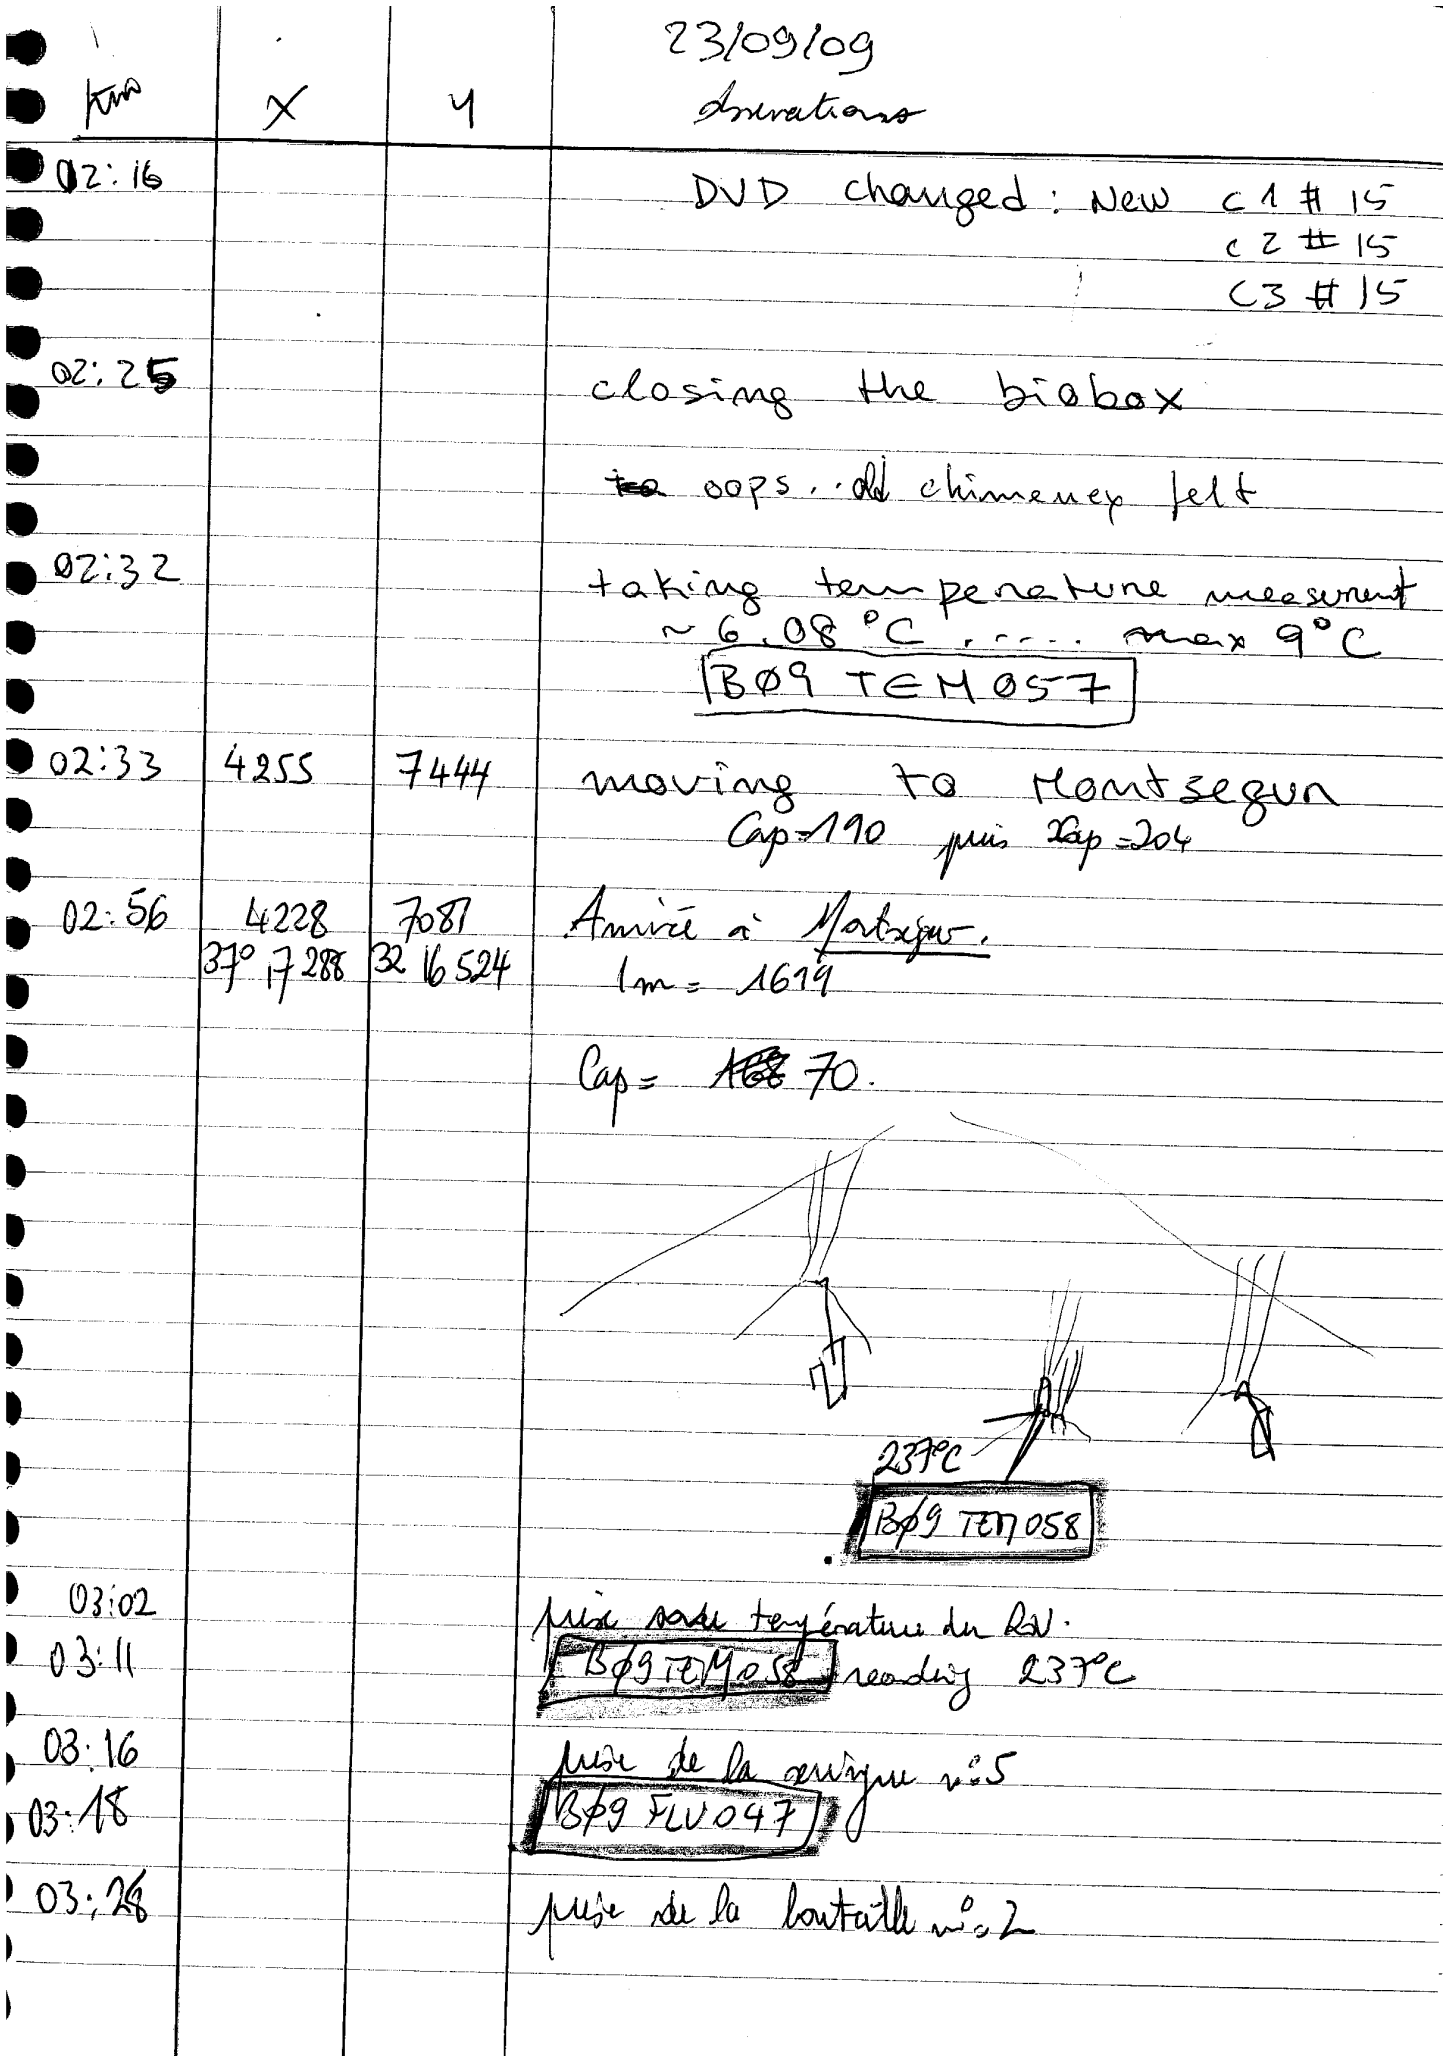 23/09/09
X Y Observations
02:16 DVD changed: New C1 # 15
C2 # 15
C3 # 15
02:25 closing the biobox
oops.. old chimeney felt
02:32 taking temperature measurent
~ 6.08 °C ..... max 9°C
BØ9 TEM 057
02:33 4255 7444 moving to Montsegur
Cap=190 puis Cap=204
02:56 4228 7081 Arrivé à Montségur.
37° 17 288 32 16 524 Im = 1619
Cap = 70.
237°C
BØ9 TEM 058
03:02 prise température du
03:11 BØ9 TEM 058 reading 237°C
03:16 prise de la seringue n°5
03:18 BØ9 FLU 047
03:28 prise de la bouteille n°2